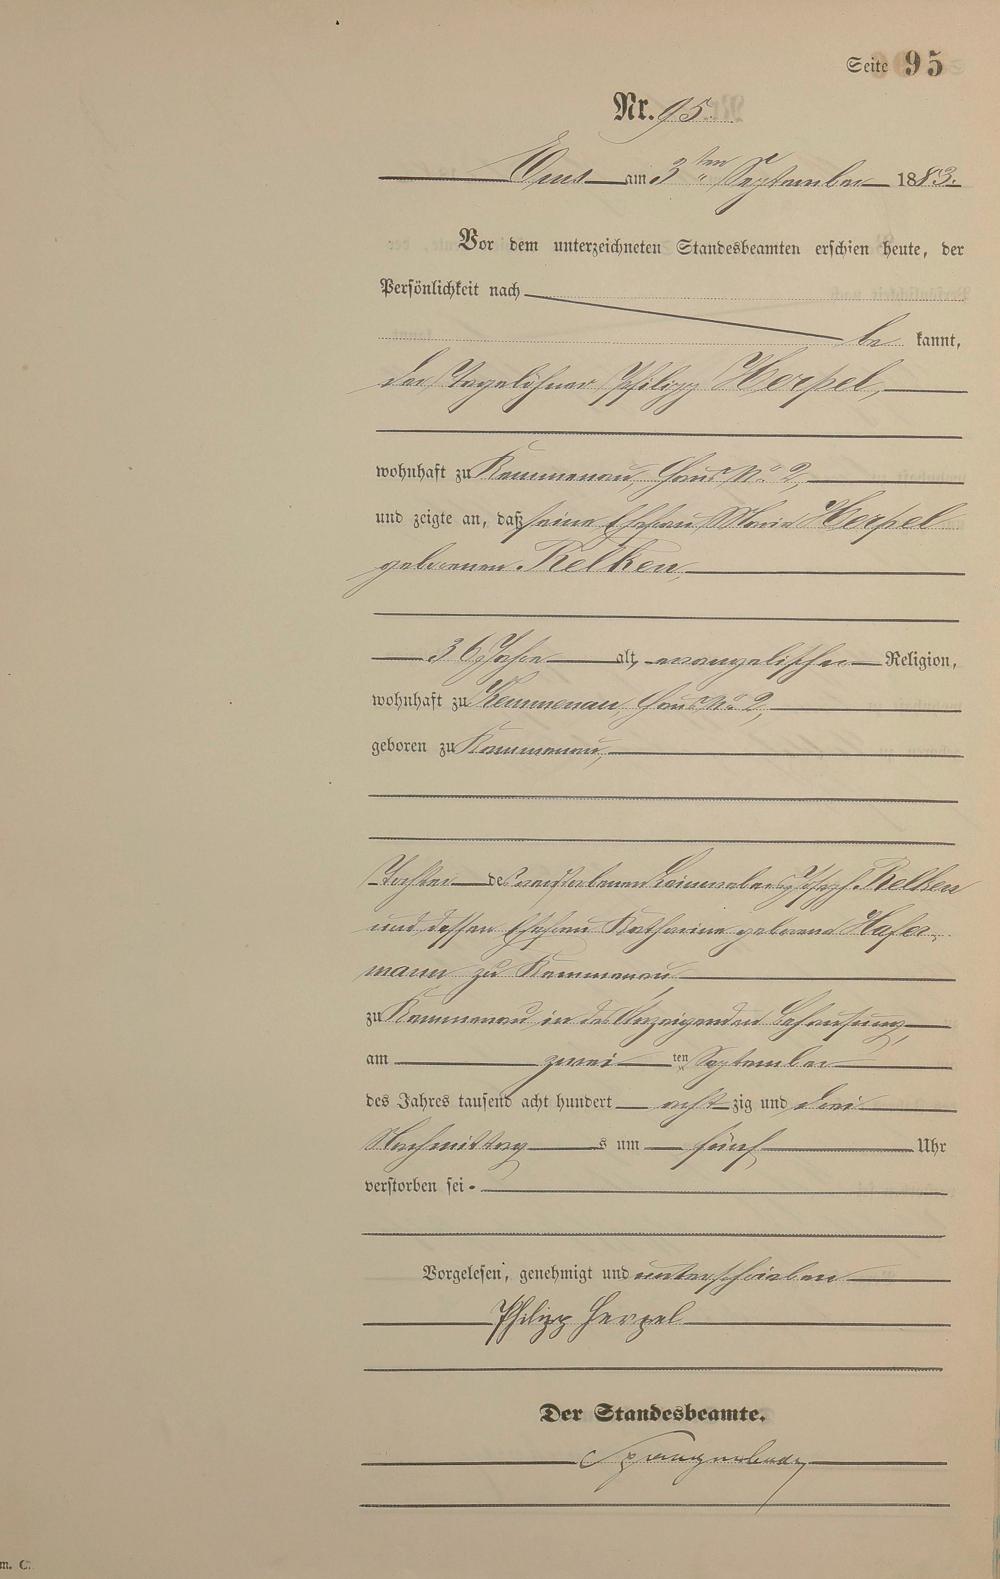 Seite 95
Nr. 95.
Ems am 3ten September 1883.
Vor dem unterzeichneten Standesbeamten erschien heute, der
Persönlichkeit nach
be kannt,
der Tagelöhner Philipp Herpel,
wohnhaft zu Kemmenau, Haus No 2,
und zeigte an, daß seine Ehefrau Maria Herpel
geborenen Relken,
36 Jahre alt, evangelischer Religion,
wohnhaft zu Kemmenau, Haus No 2,
geboren zu Kemmenau,
Tochter des verstorbenen Joseph Relken
und dessen Ehefrau Katharina geborene Hafer-
mann zu Kemmenau
zu Kemmenau in des Anzeigenden Behausung,
am zwei ten September
des Jahres tausend acht hundert acht zig und drei
Nachmittag s um fünf Uhr
verstorben sei.
Vorgelesen, genehmigt und unterschrieben
Philipp Herpel
Der Standesbeamte.
m. C.